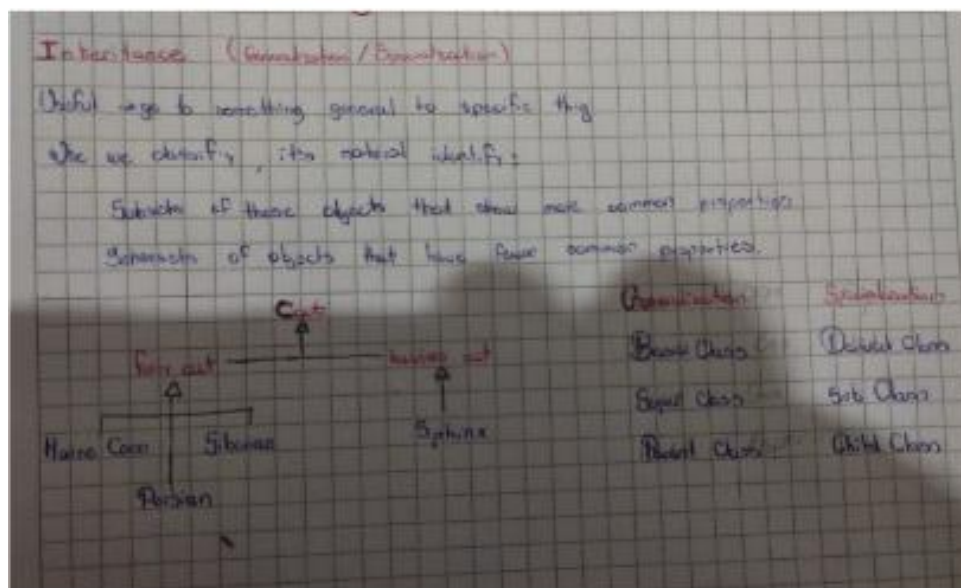 Inheritance (Generalization / Specialization)
Useful → go to something general to specific thing
we classify, its natural identify:
Subsets of these objects that show more common properties
Supersets of objects that have fewer common properties.
Cat
Furry cat hairless cat
Maine Coon Siberian Sphinx
Persian
Generalization Specialization
Base Class Derived Class
Super Class Sub Class
Parent Class Child Class